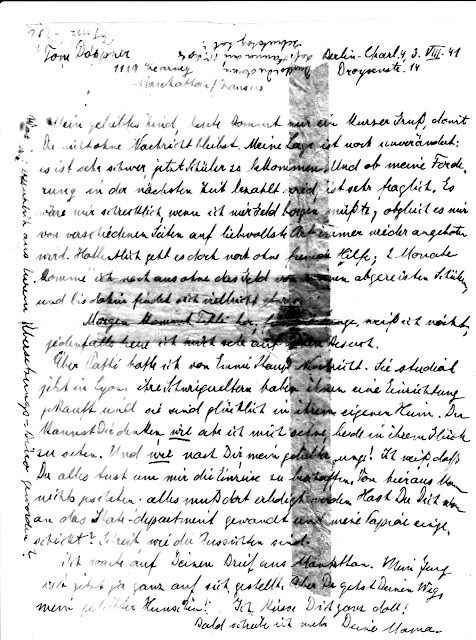 Tom Doppner
1119 Kearney
Manhattan/Kansas
Berlin-Charl. 4, 3. VIII. 41
Droysenstr. 14
Mein geliebtes Kind, heute kommt nur ein kurzer Gruß, damit
Du nicht ohne Nachricht bleibst. Meine Lage ist noch unverändert:
es ist sehr schwer jetzt Schüler zu bekommen. Und ob meine Forde-
rung in der nächsten Zeit bezahlt wird, ist sehr fraglich. Es
wäre mir schrecklich, wenn ich mir Geld borgen müßte, obgleich es mir
von verschiedenen Seiten auf liebvollste Art immer wieder angeboten
wird. Hoffentlich geht es doch noch ohne fremde Hilfe; 2 Monate
komme ich noch aus ohne das Geld von abgereisten Schülern
und bis dahin findet sich vielleicht etwas.
Morgen kommt her, weiß ich nicht,
jedenfalls freue ich mich sehr auf Besuch.
Über hatte ich von Nachricht. Sie studiert
jetzt in Lyon, ihre Schwiegereltern haben ihnen eine Einrichtung
gekauft und sie sind glücklich in ihrem eigenen Heim. Du
kannst Dir denken, wie ich mich sehne, beide in ihrem Glück
zu sehen. Und wie nach Dir mein geliebter Junge! Ich weiß, daß
Du alles tust um mir die Einreise zu beschaffen. Von hier aus kann
nichts geschehen: alles muß dort erledigt werden. Hast Du Dich schon
an das State-department gewandt und meine Papiere einge-
schickt? Schreib wie die Aussichten sind.
Ich warte auf Deinen Brief aus Manhattan. Mein Jung
jetzt ja ganz auf sich gestellt. Aber Du gehst Deinen Weg,
mein geliebter! Ich küsse Dich ganz doll!
Bald schreibe ich mehr Deine Mama.
Was ist eigentlich aus Eurem geworden?